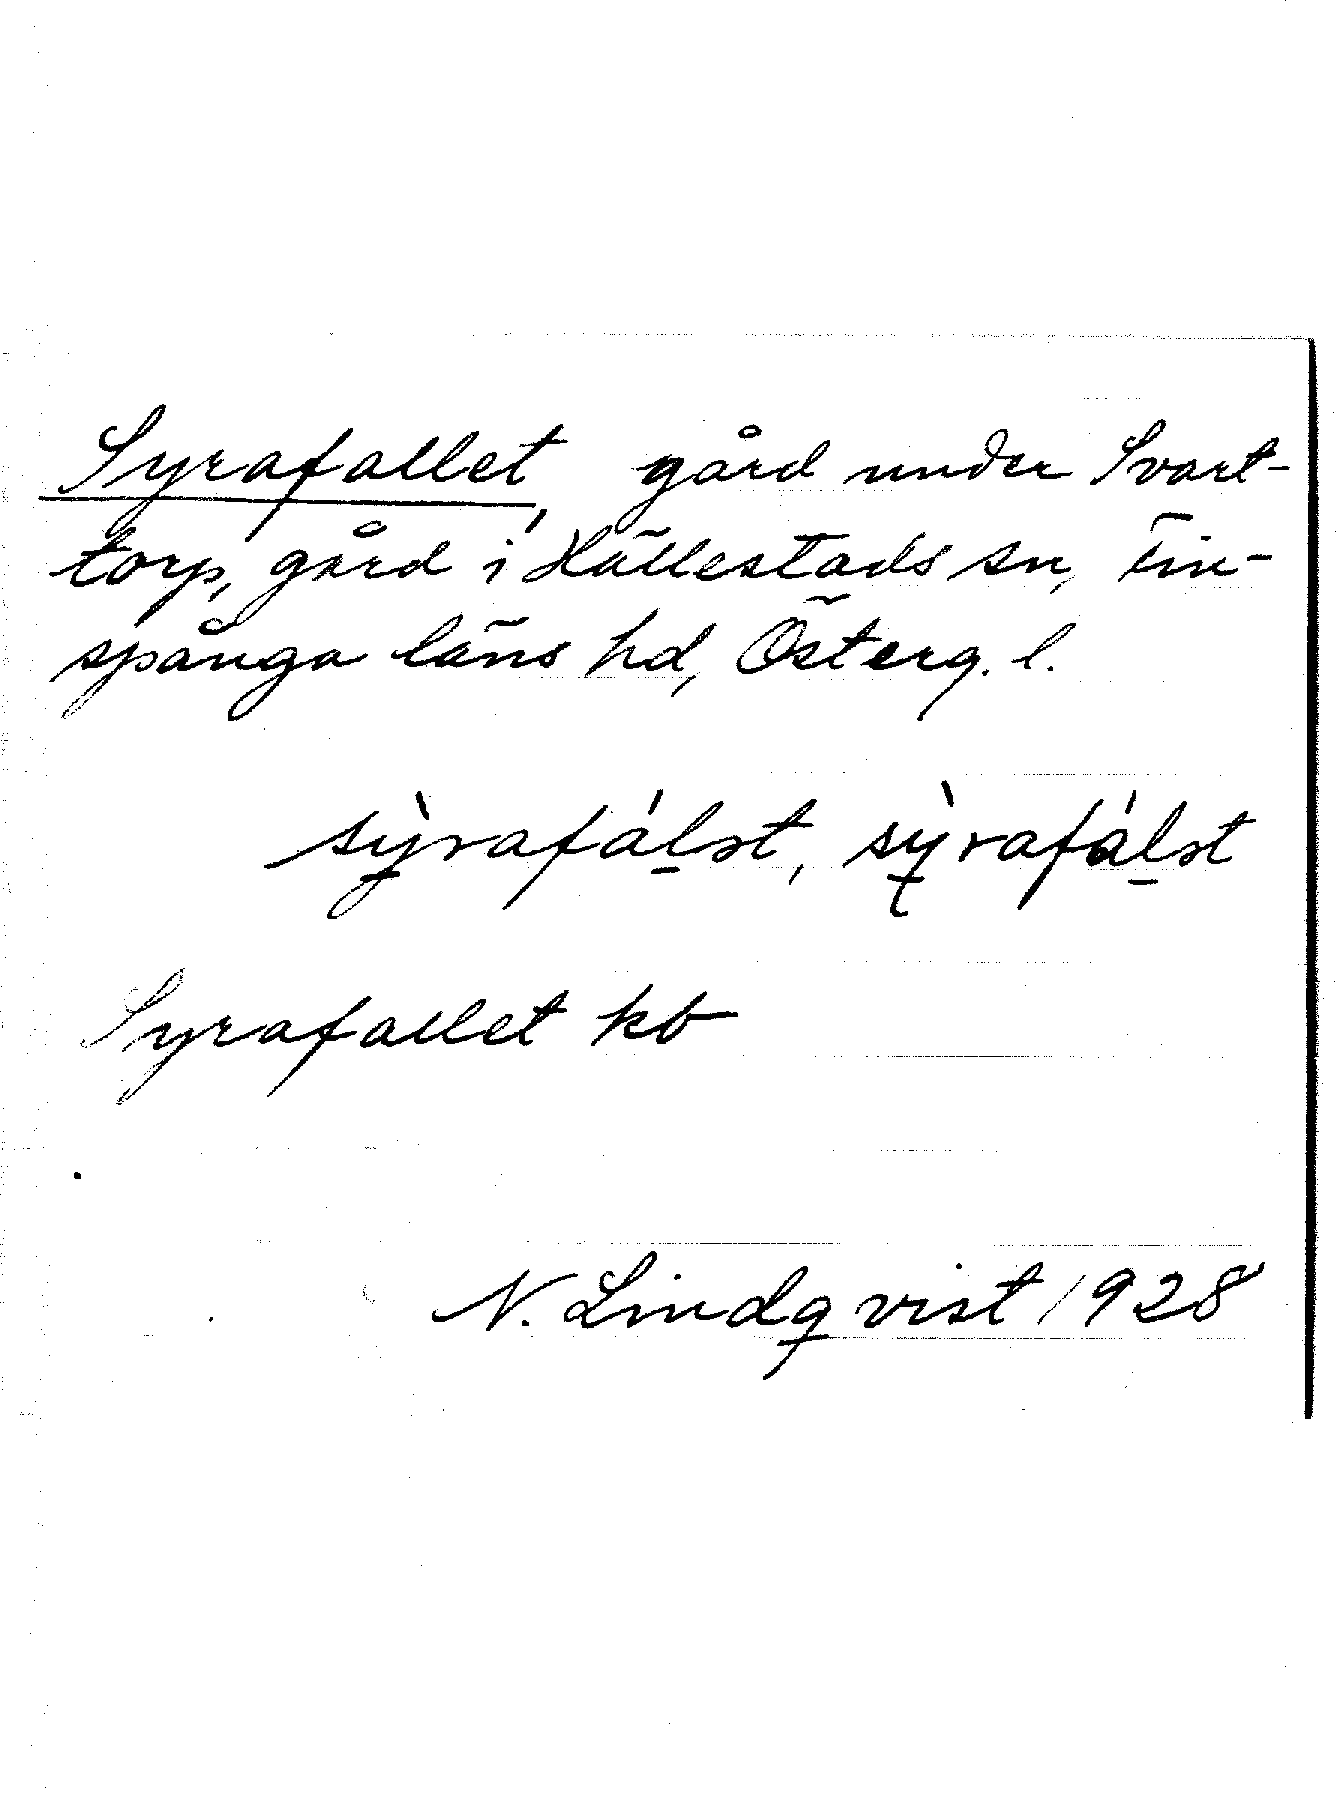 Syrafallet, gård under Svart-
torp, gård i Hällestads sn, Fin-
spånga läns hd, Österg. l.
sỳrafálət, sỳrafálət
Syrafallet kb
N. Lindqvist 1928